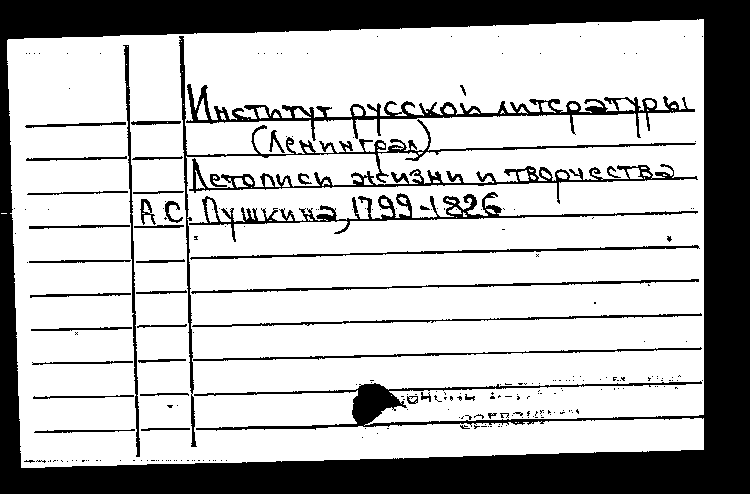 Институт русской литературы
(Ленинград).
Летопись жизни и творчества
А.С. Пушкина, 1799-1826